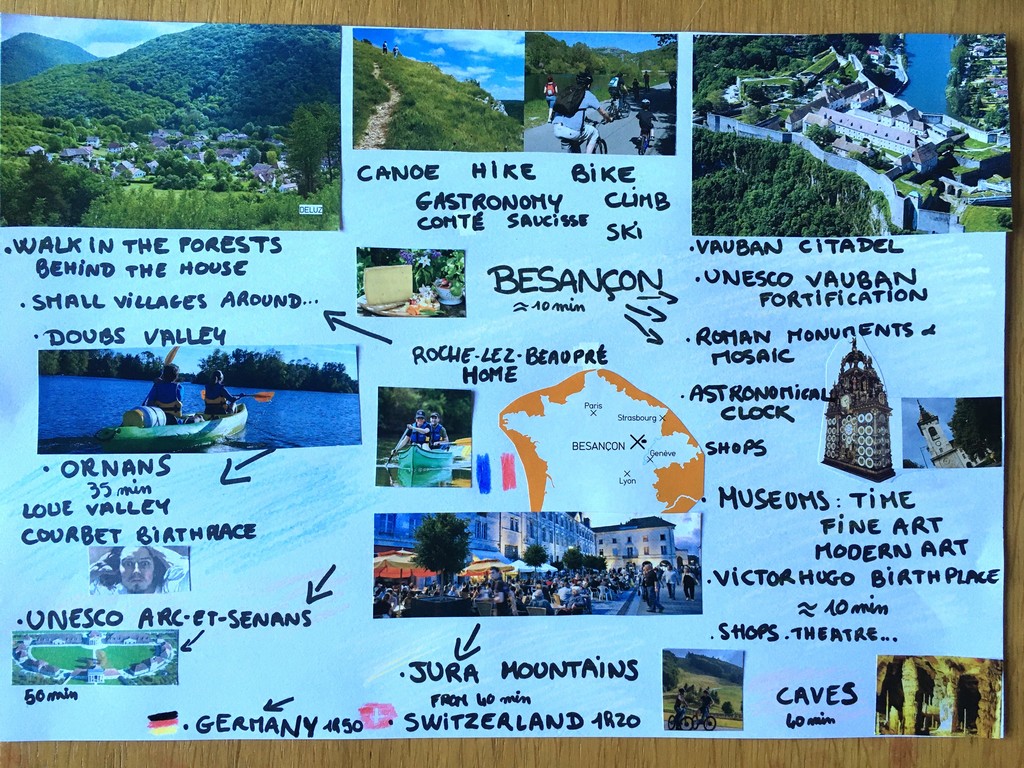 DELUZ
CANOE HIKE BIKE
GASTRONOMY CLIMB
COMTÉ SAUCISSE SKI
.WALK IN THE FORESTS
BEHIND THE HOUSE
. SMALL VILLAGES AROUND...
. DOUBS VALLEY
BESANÇON
≈ 10 min
ROCHE-LEZ-BEAUPRÉ
HOME
Paris
Strasbourg
BESANÇON
Genève
Lyon
.VAUBAN CITADEL
.UNESCO VAUBAN
FORTIFICATION
.ROMAN MONUMENTS &
MOSAIC
.ASTRONOMICAL
CLOCK
SHOPS
. MUSEUMS: TIME
FINE ART
MODERN ART
.VICTOR HUGO BIRTHPLACE
≈ 10 min
. SHOPS . THEATRE...
. ORNANS
35 min
LOUE VALLEY
COURBET BIRTHPLACE
. UNESCO ARC-ET-SENANS
50 min
. JURA MOUNTAINS
FROM 40 min
. GERMANY 1R50
. SWITZERLAND 1R20
CAVES
40 min